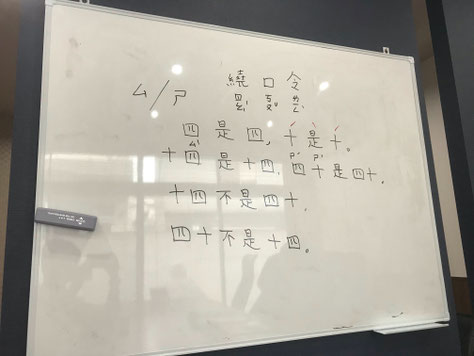 ㄙ/ㄕ 繞口令
四是四,十是十。
十四是十四,四十是四十。
十四不是四十,
四十不是十四。